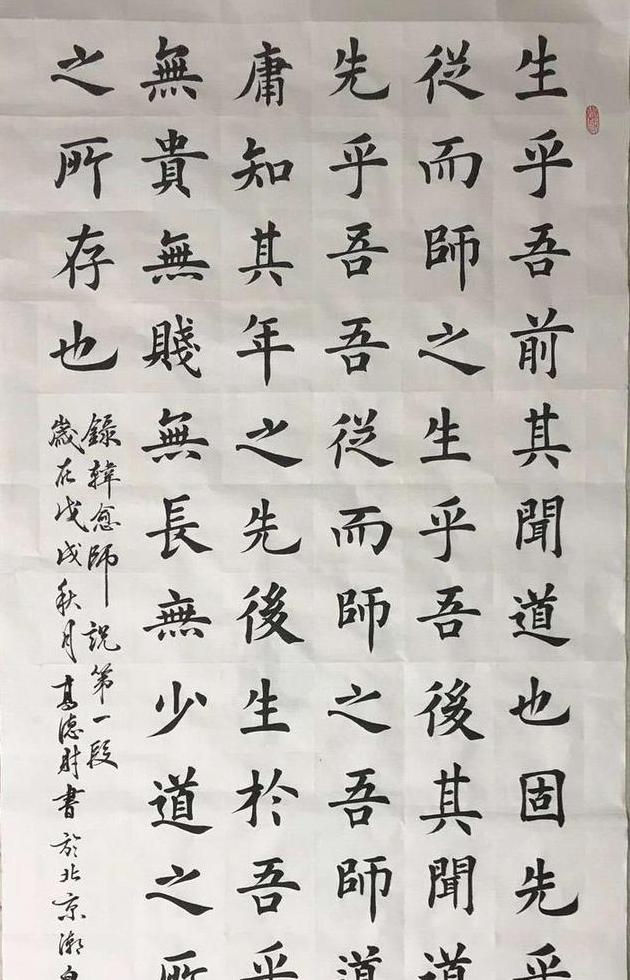 生乎吾前其聞道也固先乎
從而師之生乎吾後其聞道
先乎吾吾從而師之吾師道
庸知其年之先後生於吾乎
無貴無賤無長無少道之所
之所存也
錄韓愈師說第一段
歲在戊戌秋月高德財書於北京潮白